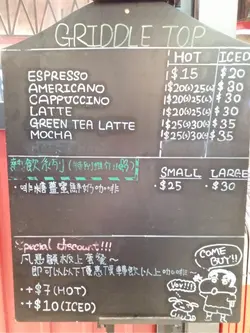 GRIDDLE TOP
HOT ICED
ESPRESSO $15 $20
AMERICANO $20(S)25(L) $30
CAPPUCCINO $20(S)25(L) $30
LATTE $20(S)25(L) $30
GREEN TEA LATTE $25(S)30(L) $35
MOCHA $25(S)30(L) $35
SMALL LARGE
咖啡 $25 $30
Special discount!!!
凡惠顧
即可以以下優惠價轉飲以上咖啡~
+$7 (HOT)
+$10 (ICED)
COME BUY!!